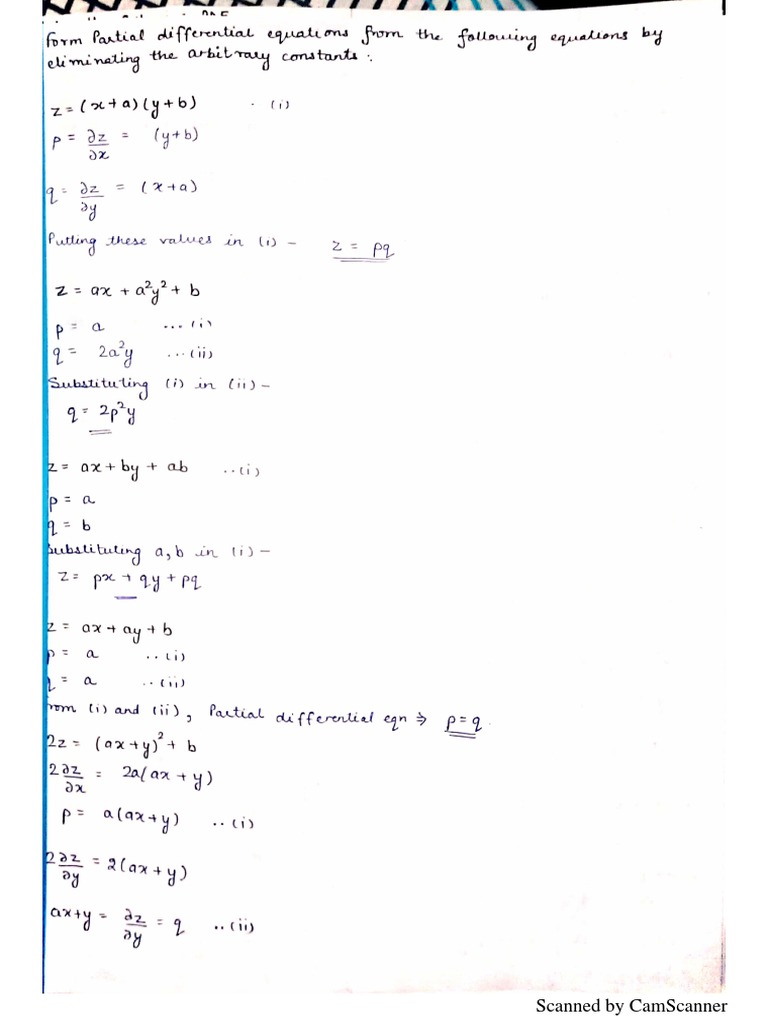 Form Partial differential equations from the following equations by
eliminating the arbitrary constants :
z = (x+a)(y+b) . (i)
p = ∂z/∂x = (y+b)
q = ∂z/∂y = (x+a)
Putting these values in (i) – z = pq
z = ax + a²y² + b
p = a ...(i)
q = 2a²y ...(ii)
Substituting (i) in (ii) –
q = 2p²y
z = ax + by + ab ..(i)
p = a
q = b
Substituting a, b in (i) –
z = px + qy + pq
z = ax + ay + b
p = a ..(i)
q = a ..(ii)
rom (i) and (ii), Partial differential eqn ⇒ p = q.
2z = (ax+y)² + b
2∂z/∂x = 2a(ax + y)
p = a(ax+y) ..(i)
2∂z/∂y = 2(ax+y)
ax+y = ∂z/∂y = q ..(ii)
Scanned by CamScanner